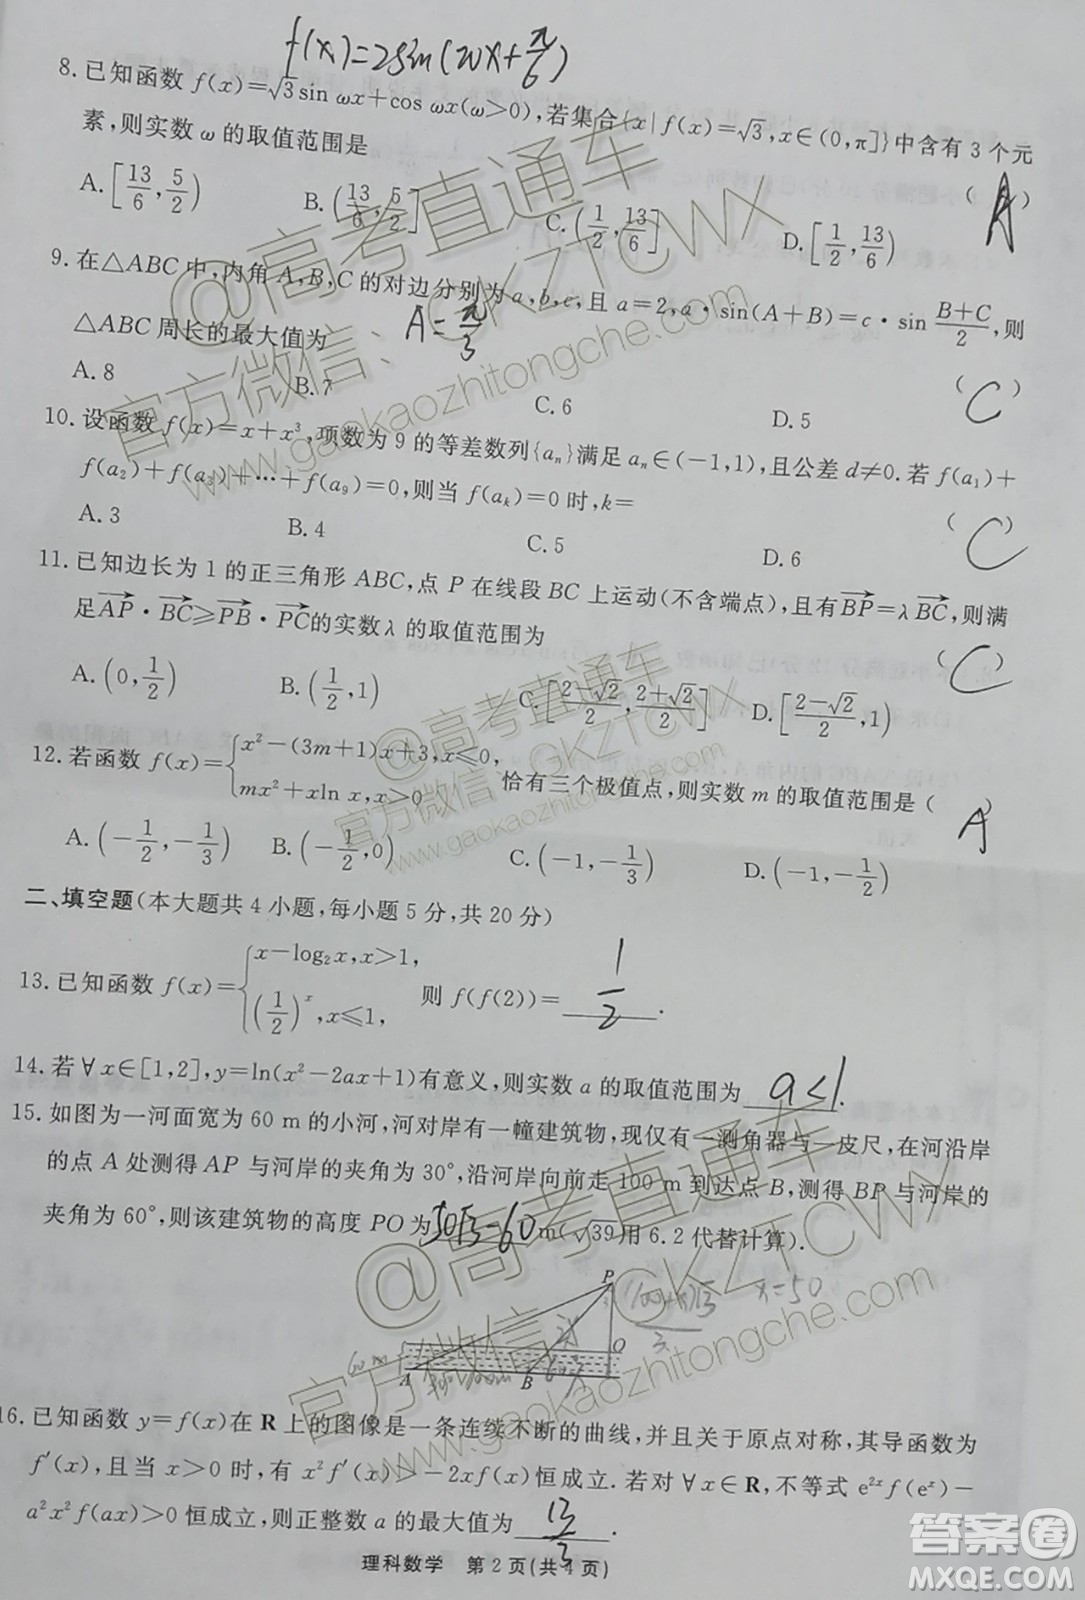 f(x)=2sin(wx+π/6)
8. 已知函数 f(x)=√3sin ωx+cos ωx(ω>0),若集合{x|f(x)=√3,x∈(0,π]}中含有 3 个元
素,则实数 ω 的取值范围是 ( A )
A. [13/6, 5/2) B. (13/6, 5/2] C. (1/2, 13/6] D. [1/2, 13/6)
9. 在△ABC 中,内角 A,B,C 的对边分别为 a,b,c,且 a=2,a·sin(A+B)=c·sin (B+C)/2,则
△ABC 周长的最大值为 A=π/3 ( C )
A. 8 B. 7 C. 6 D. 5
10. 设函数 f(x)=x+x³,项数为 9 的等差数列{aₙ}满足 aₙ∈(-1,1),且公差 d≠0.若 f(a₁)+
f(a₂)+f(a₃)+…+f(a₉)=0,则当 f(aₖ)=0 时,k= ( C )
A. 3 B. 4 C. 5 D. 6
11. 已知边长为 1 的正三角形 ABC,点 P 在线段 BC 上运动(不含端点),且有→BP=λ→BC,则满
足→AP·→BC≥→PB·→PC的实数 λ 的取值范围为 ( C )
A. (0, 1/2) B. (1/2, 1) C. [(2-√2)/2, (2+√2)/2] D. [(2-√2)/2, 1)
12. 若函数 f(x)={x²-(3m+1)x+3,x≤0, mx²+xln x,x>0 恰有三个极值点,则实数 m 的取值范围是 ( A )
A. (-1/2, -1/3) B. (-1/2, 0) C. (-1, -1/3) D. (-1, -1/2)
二、填空题(本大题共 4 小题,每小题 5 分,共 20 分)
13. 已知函数 f(x)={x-log₂x,x>1, (1/2)ˣ,x≤1, 则 f(f(2))= 1/2 .
14. 若∀x∈[1,2],y=ln(x²-2ax+1)有意义,则实数 a 的取值范围为 a<1.
15. 如图为一河面宽为 60 m 的小河,河对岸有一幢建筑物,现仅有一测角器与一皮尺,在河沿岸
的点 A 处测得 AP 与河岸的夹角为 30°,沿河岸向前走 100 m 到达点 B,测得 BP 与河岸的
夹角为 60°,则该建筑物的高度 PO 为 50√3-60 m(√39用 6.2 代替计算).
P
x=50
O
A
B
16. 已知函数 y=f(x)在 R 上的图像是一条连续不断的曲线,并且关于原点对称,其导函数为
f′(x),且当 x>0 时,有 x²f′(x)>-2xf(x)恒成立.若对∀x∈R,不等式 e²ˣf(eˣ)-
a²x²f(ax)>0 恒成立,则正整数 a 的最大值为 .
理科数学 第 2 页(共 4 页)
@高考直通车
官方微信:GKZTCWX
www.gaokaozhitongche.com
@高考直通车
官方微信:GKZTCWX
www.gaokaozhitongche.com
@高考直通车
官方微信:GKZTCWX
www.gaokaozhitongche.com
答案圈
MXQE.COM